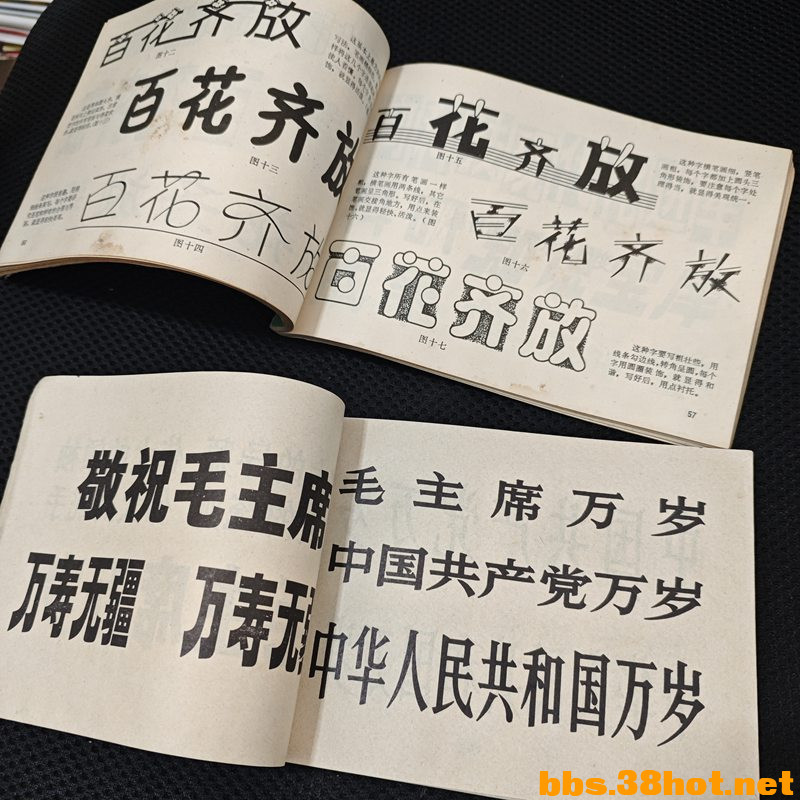 百花齐放
图十二
百花齐放
图十三
百花齐放
图十四
百花齐放
图十五
这种字横笔画细，竖笔
画粗，每个字都加上圆头三
角形装饰，要注意每个字处
理得当，就显得美观统一。
这种字所有笔画一样
粗，横笔画用两条线，其它
笔画呈三角形，写好后，在
笔画交接角地方，用点来装
饰，就显得轻快、活泼。（图
十六）
百花齐放
图十六
百花齐放
图十七
这种字要写粗壮些，用
线条勾边线，转角呈圆，每个
字用圆圈装饰，就显得和
谐，写好后，用点衬托。
57
敬祝毛主席
万寿无疆 万寿无
毛主席万岁
中国共产党万岁
中华人民共和国万岁
bbs.38hot.net